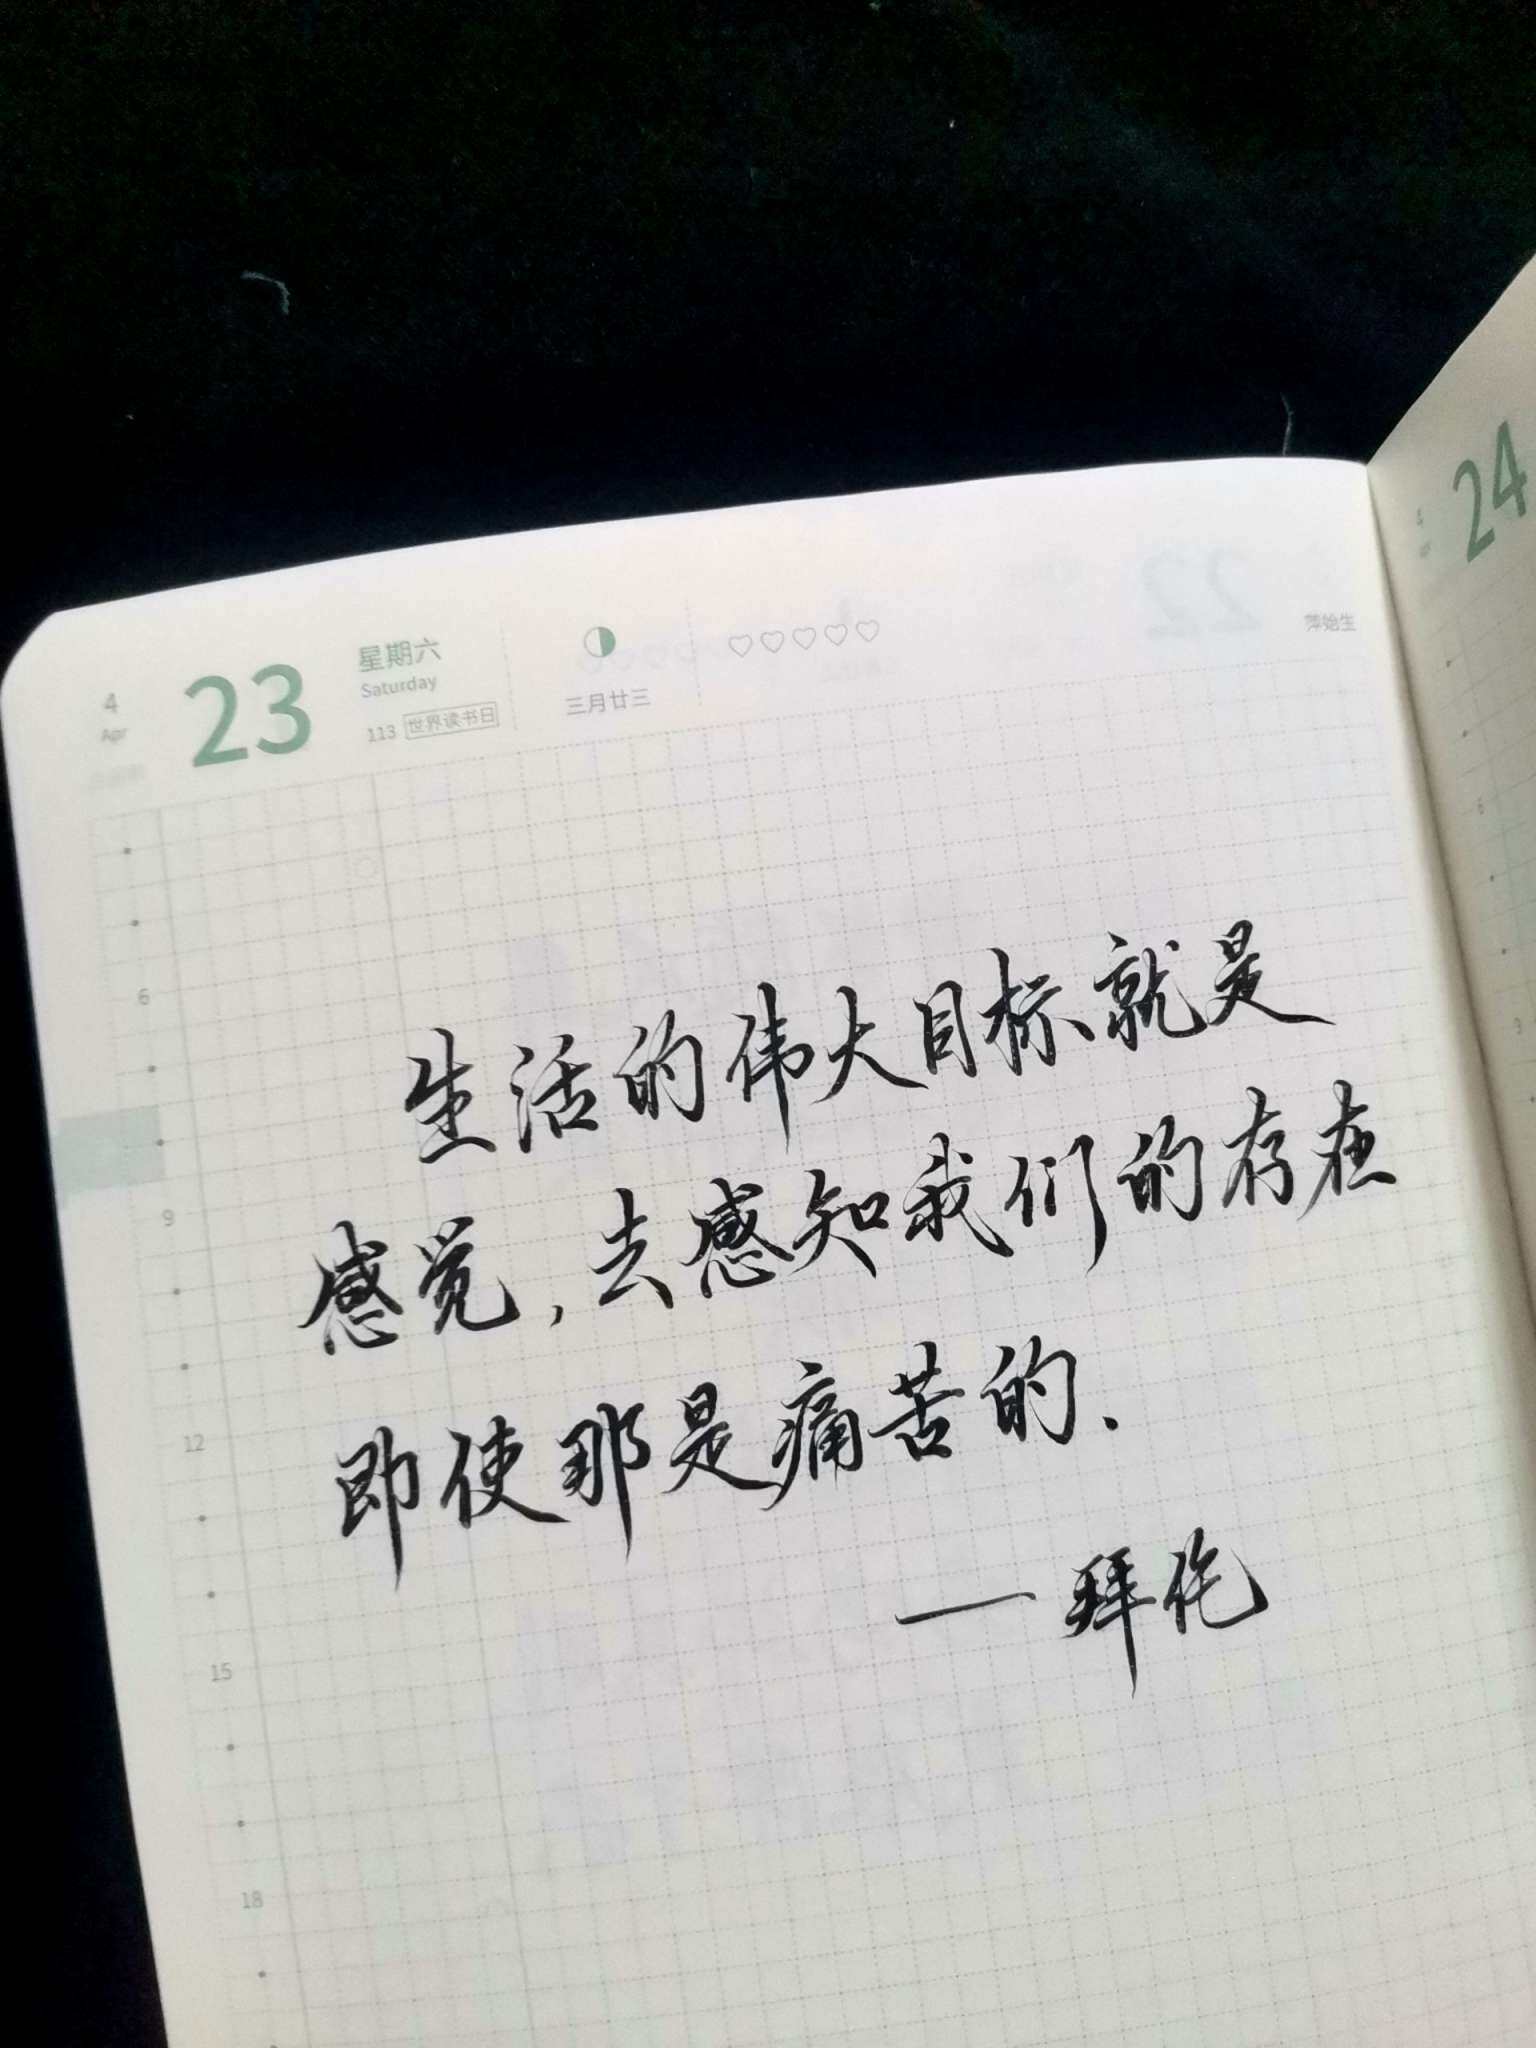 4
Apr
23
星期六
Saturday
113 世界读书日
三月廿三
萍始生
24
4
6
9
12
15
18
生活的伟大目标、就是
感觉，去感知我们的存在
即使那是痛苦的.
——拜伦